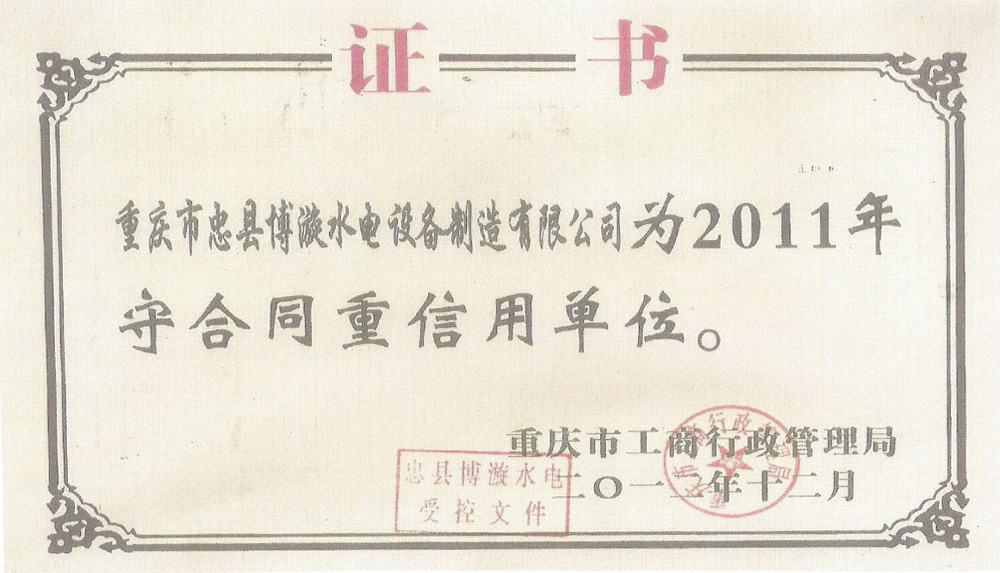 证书
重庆市忠县博漩水电设备制造有限公司为2011年
守合同重信用单位。
重庆市工商行政管理局
二〇一二年十二月
忠县博漩水电
受控文件